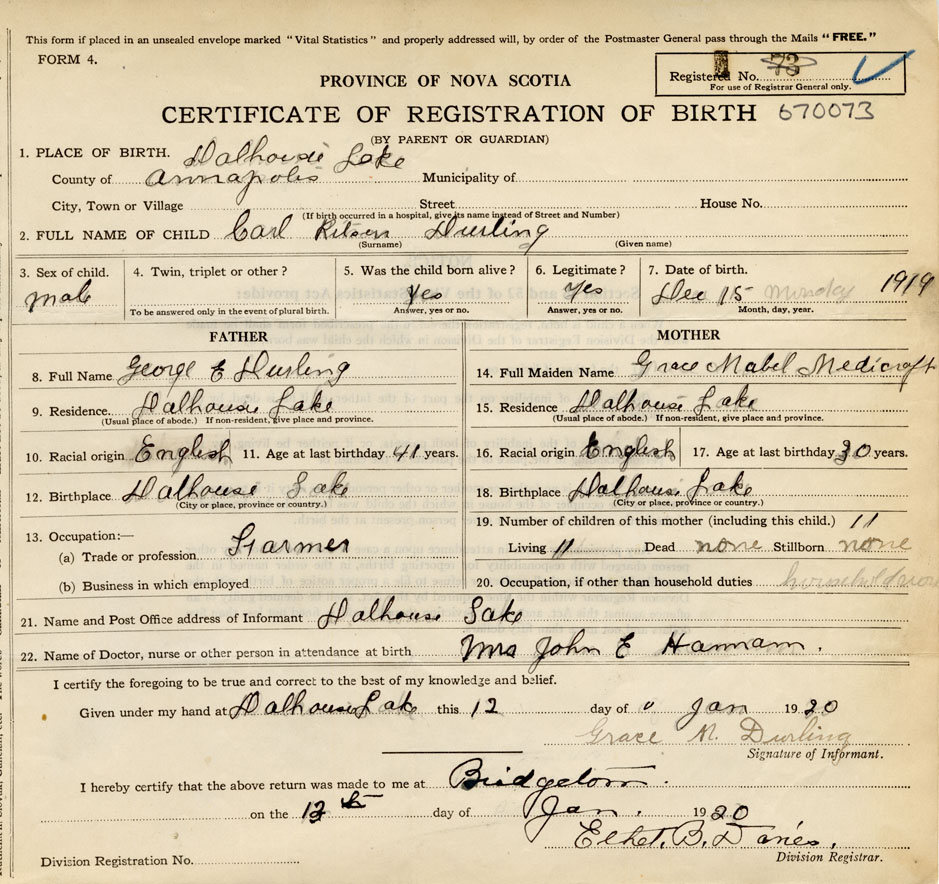 This form if placed in an unsealed envelope marked "Vital Statistics" and properly addressed will, by order of the Postmaster General pass through the Mails "FREE."
FORM 4.
Registered No. 73
For use of Registrar General only.
PROVINCE OF NOVA SCOTIA
CERTIFICATE OF REGISTRATION OF BIRTH 670073
(BY PARENT OR GUARDIAN)
1. PLACE OF BIRTH. Dalhousie Lake
County of Annapolis Municipality of
City, Town or Village Street House No.
(If birth occurred in a hospital, give its name instead of Street and Number)
2. FULL NAME OF CHILD Carl Durling
(Surname) (Given name)
3. Sex of child. 4. Twin, triplet or other? 5. Was the child born alive? 6. Legitimate? 7. Date of birth.
male Yes Yes Dec 15 Monday 1919
To be answered only in the event of plural birth. Answer, yes or no. Answer, yes or no. Month, day, year.
FATHER
8. Full Name George E Durling
9. Residence. Dalhousie Lake
(Usual place of abode.) If non-resident, give place and province.
10. Racial origin English 11. Age at last birthday 41 years.
12. Birthplace Dalhousie Lake
(City or place, province or country.)
13. Occupation:—
(a) Trade or profession Farmer
(b) Business in which employed
MOTHER
14. Full Maiden Name Grace Mabel Medicraft
15. Residence Dalhousie Lake
(Usual place of abode.) If non-resident, give place and province.
16. Racial origin English 17. Age at last birthday 30 years.
18. Birthplace Dalhousie Lake
(City or place, province or country.)
19. Number of children of this mother (including this child.) 11
Living 11 Dead none Stillborn none
20. Occupation, if other than household duties
21. Name and Post Office address of Informant Dalhousie Lake
22. Name of Doctor, nurse or other person in attendance at birth Mrs John E Hannam.
I certify the foregoing to be true and correct to the best of my knowledge and belief.
Given under my hand at Dalhousie Lake this 12 day of " Jan 1920
Grace M. Durling
Signature of Informant.
I hereby certify that the above return was made to me at Bridgetown.
on the 12th day of Jan. 1920
B. Davies.
Division Registrar.
Division Registration No.